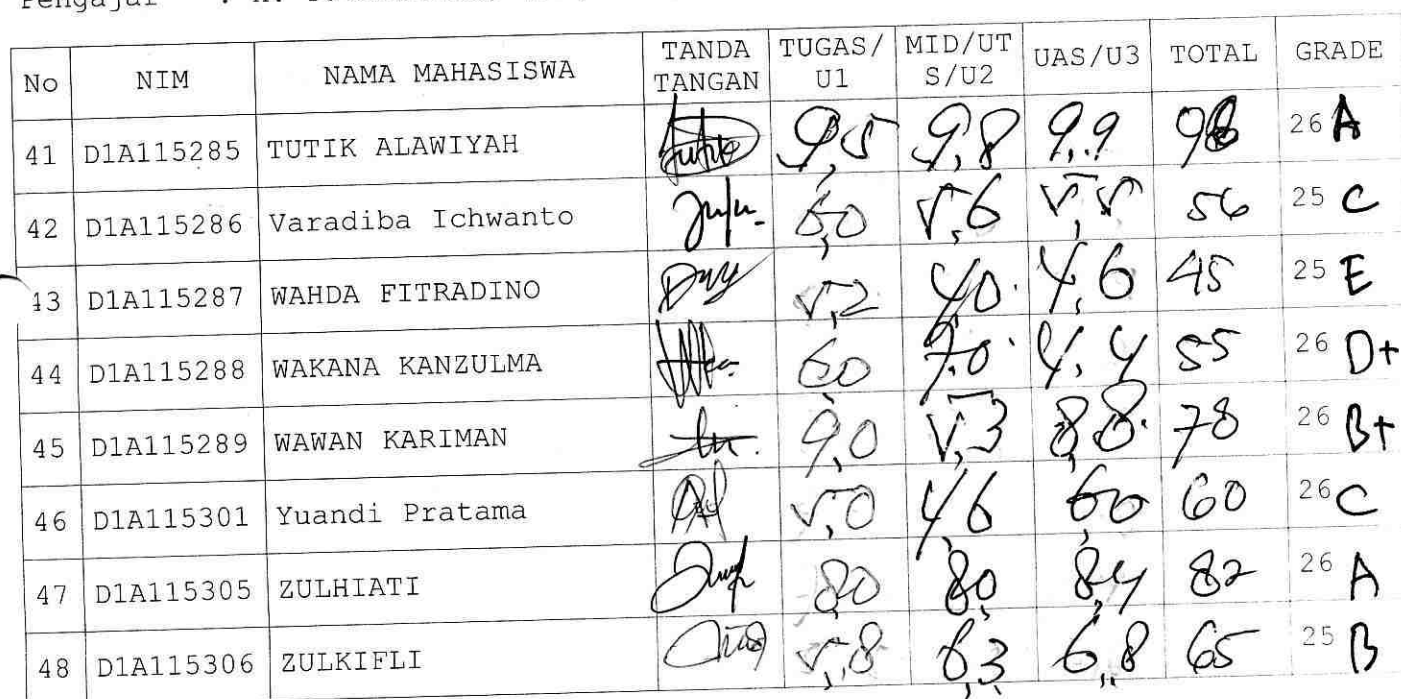 Pengajar :
No NIM NAMA MAHASISWA TANDA TANGAN TUGAS/U1 MID/UTS/U2 UAS/U3 TOTAL GRADE
41 D1A115285 TUTIK ALAWIYAH 9,5 9,8 9,9 98 26 A
42 D1A115286 Varadiba Ichwanto 6,0 5,6 5,5 56 25 C
43 D1A115287 WAHDA FITRADINO 5,2 4,0 4,6 45 25 E
44 D1A115288 WAKANA KANZULMA 6,0 7,0 4,4 55 26 D+
45 D1A115289 WAWAN KARIMAN 9,0 5,3 8,8 78 26 B+
46 D1A115301 Yuandi Pratama 5,0 4,6 6,0 60 26 C
47 D1A115305 ZULHIATI 8,0 8,0 8,4 82 26 A
48 D1A115306 ZULKIFLI 5,8 6,3 6,8 65 25 B